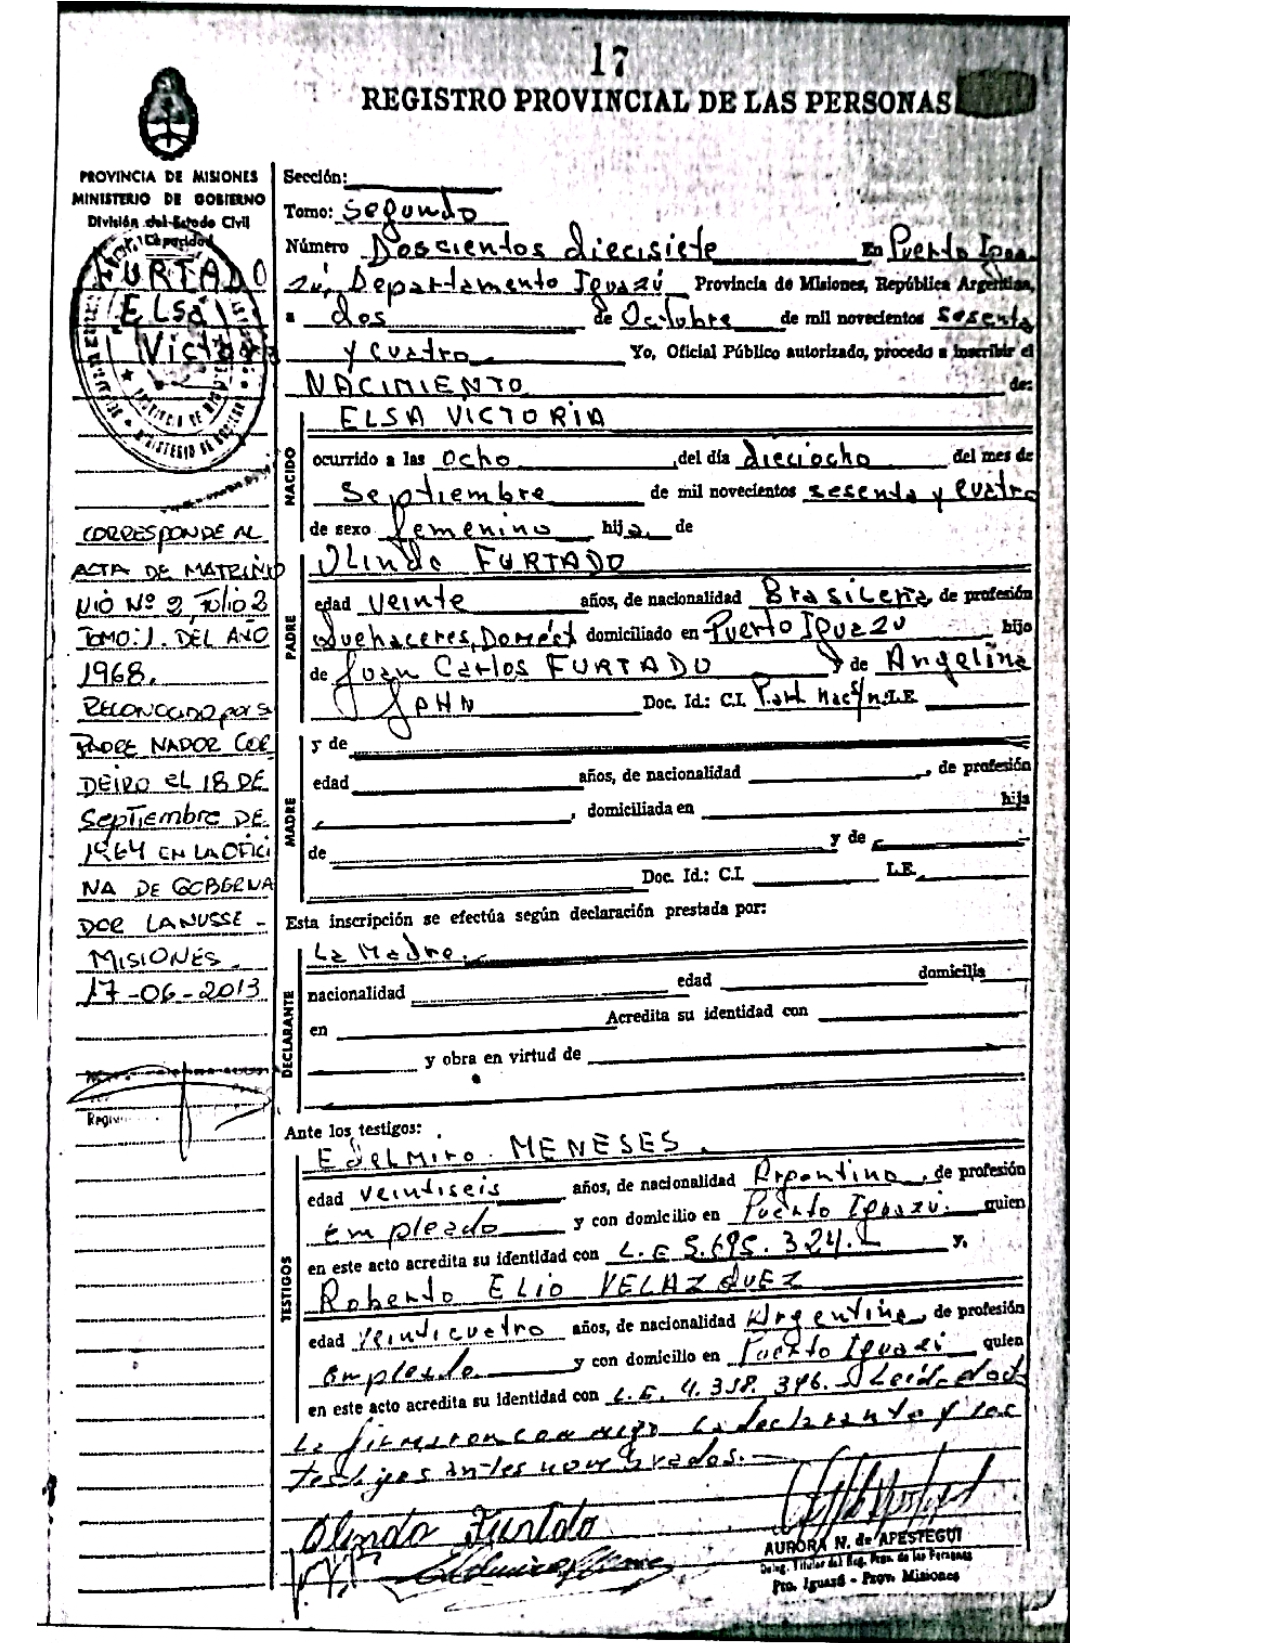 17
REGISTRO PROVINCIAL DE LAS PERSONAS
PROVINCIA DE MISIONES
MINISTERIO DE GOBIERNO
División del Estado Civil
y Capacidad
FURTADO
ELSA
Victoria
CORRESPONDE AL
ACTA DE MATRIMO
NIO Nº 2, Folio 2
TOMO: 1. DEL AÑO
1968.
RECONOCIDO por s
PADRE NADOR COR
DEIRO EL 18 DE
Septiembre DE
1964 EN LA OFICI
NA DE GOBERNA
DOR LANUSSE -
MISIONES.
17-06-2013
Sección:
Tomo: Segundo
Número Doscientos diecisiete En Puerto Igua
zú, Departamento Iguazú Provincia de Misiones, República Argentina,
a dos de Octubre de mil novecientos sesenta
y cuatro Yo, Oficial Público autorizado, procedo a inscribir el
NACIMIENTO de:
NACIDO
ELSA VICTORIA
ocurrido a las ocho, del día dieciocho del mes de
Septiembre de mil novecientos sesenta y cuatro
de sexo femenino hija de
PADRE
Olindo FURTADO
edad veinte años, de nacionalidad Brasilera, de profesión
Quehaceres, Domést domiciliado en Puerto Iguazú hijo
de Juan Carlos FURTADO y de Angelina
Doc. Id.: C.I. Part. nac. s/n: L.E.
MADRE
y de
edad años, de nacionalidad, de profesión
, domiciliada en hija
de y de
Doc. Id.: C.I. L.E.
Esta inscripción se efectúa según declaración prestada por:
DECLARANTE
La Madre.
nacionalidad edad domicilia
en Acredita su identidad con
y obra en virtud de
Ante los testigos:
TESTIGOS
Edelmiro MENESES
edad veintiseis años, de nacionalidad Argentino, de profesión
empleado y con domicilio en Puerto Iguazú. quien
en este acto acredita su identidad con L.E 5.695.324. y,
Roberto ELIO VELAZQUEZ
edad veinticuatro años, de nacionalidad Argentina, de profesión
empleado y con domicilio en Puerto Iguazú quien
en este acto acredita su identidad con L.E. 4.358.396. Leída el act
la firmaron con migo la declarante y los
testigos antes nombrados.
Olindo Furtado
AURORA N. de APESTEGUI
Deleg. Titular del Reg. Prov. de las Personas
Pto. Iguazú - Prov. Misiones